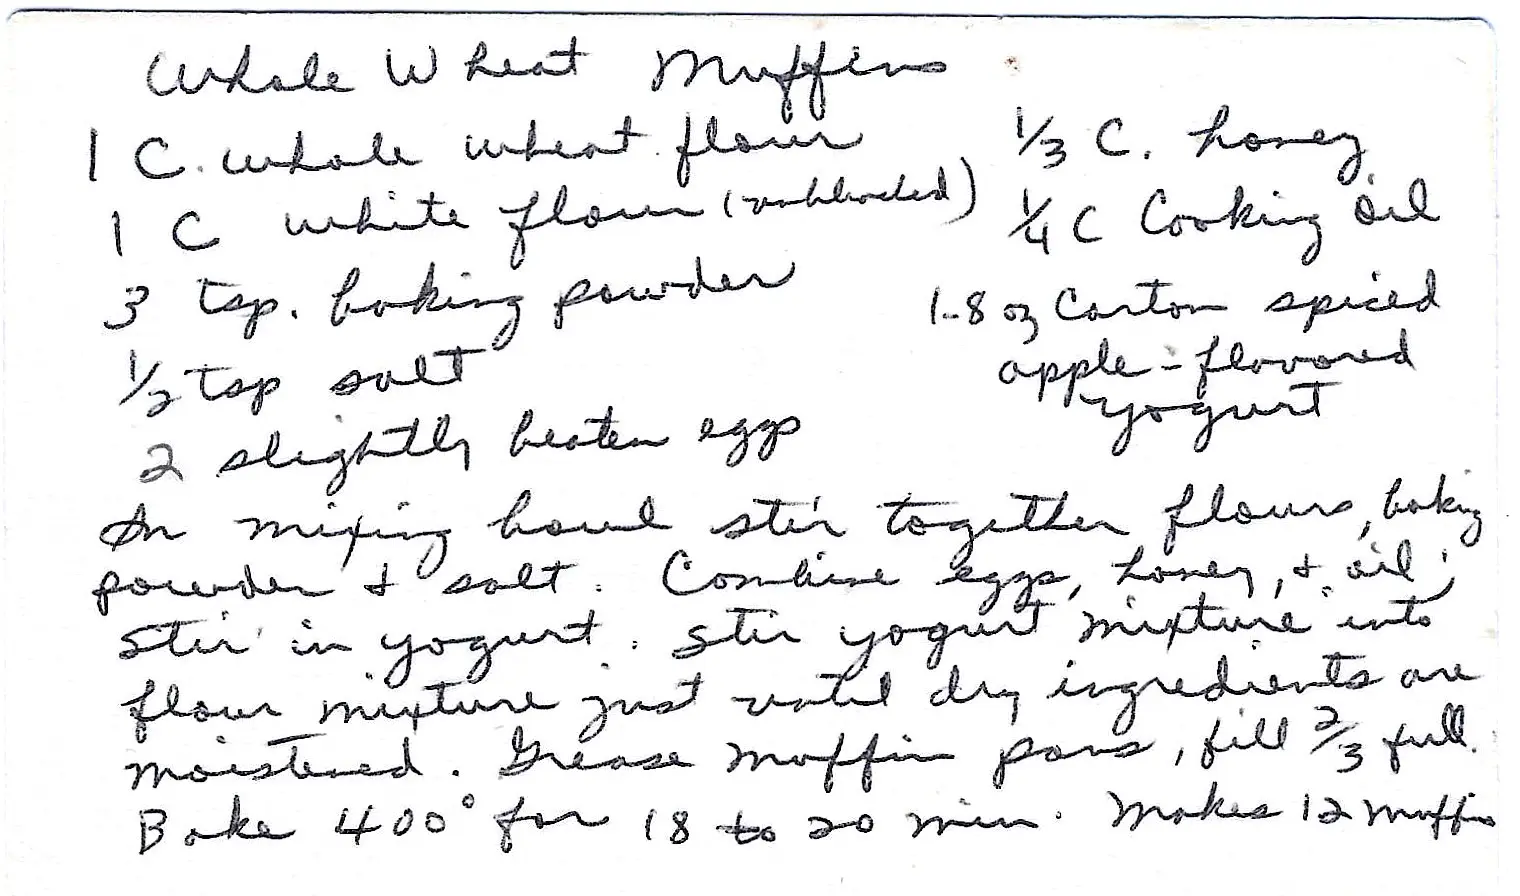 Whole Wheat Muffins
1 C. whole wheat flour
1 C white flour (unbleached)
3 tsp. baking powder
1/2 tsp salt
2 slightly beaten eggs
1/3 C. honey
1/4 C Cooking oil
1-8 oz Carton spiced
apple-flavored
yogurt
In mixing bowl stir together flours, baking
powder & salt. Combine eggs, honey, & oil;
Stir in yogurt. Stir yogurt mixture into
flour mixture just until dry ingredients are
moistened. Grease muffin pans, fill 2/3 full.
Bake 400° for 18 to 20 min. Makes 12 muffins